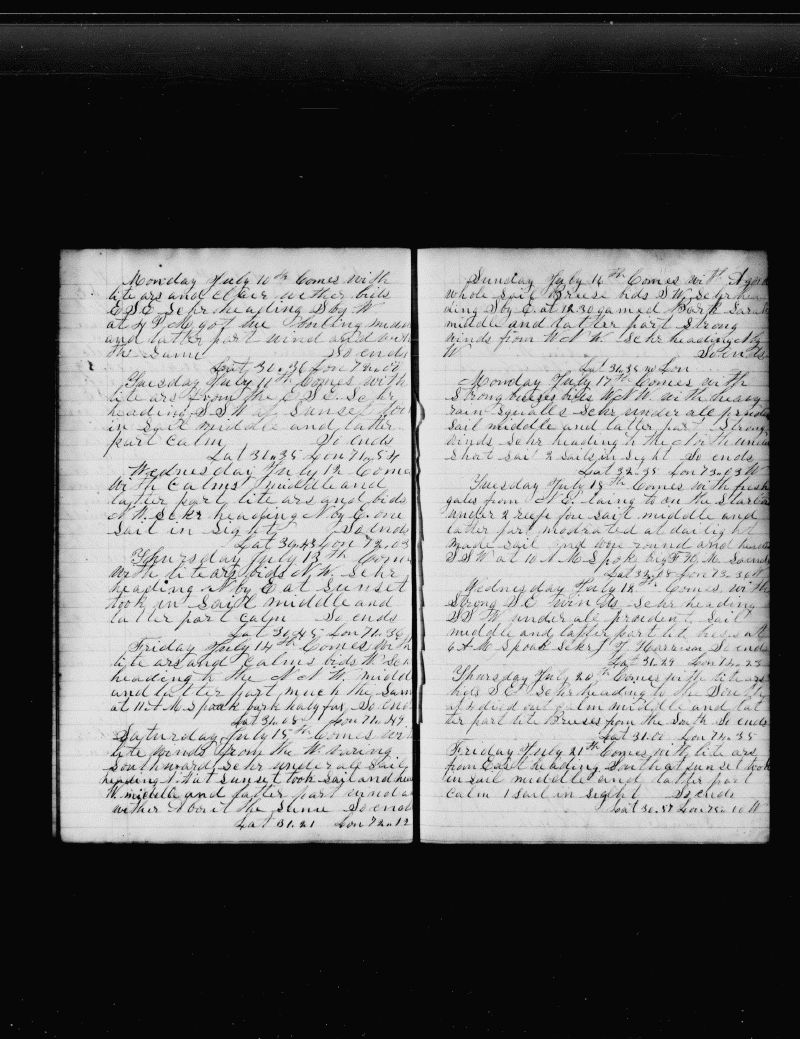 Monday July 10th Comes with
lite ars and Clear wether bids
E S E Schr heading S by W
at 4 P M got the
and latter part wind and weth
the Same So ends
Lat 30.36 Lon 72.00
Tuesday July 11th Comes with
lite ars from the E S E Schr
heading S S W at Sunset took
in Sail middle and latter
part Calm So ends
Lat 31.35 Lon 71.54
Wednesday July 12 Comes
with Calms middle and
latter part lite ars and bids
N W. Schr heading N by E one
Sail in Sight So ends
Lat 30.43 Lon 72.03
Thursday July 13th Comes
with lite ars bids N W Schr
heading N by E at Sunset
took in Sail middle and
latter part calm So ends
Lat 30.45 Lon 71.36
Friday July 14th Comes with
lite ars and Calms bids W Schr
heading to the N N W. middle
and latter part much the Same
at 11 A M Spoak bark halyfax So ends
Lat 31.08 Lon 71.49
Saturday July 15th Comes with
lite winds from the W varing
Southward Schr under ale Sail
heading N. W at Sunset took sail and head
W middle and latter part wind and
wether About the Same So ends
Lat 31.21 Lon 72.12
Sunday July 16th Comes with A good
whole Sail Breese bds S W. Schr hea
ding S by E. at 12.30 gamed Bark Sarah
middle and latter part Strong
winds from W N W Schr heading N by
W So ends
Lat 31.35 no Lon
Monday July 17th Comes with
Strong breeses bids W N W with heavy
rain Squalls Schr under ale prudent
sail middle and latter part Strong
winds Schr heading to the North under
Short sail 2 sails in Sight So ends
Lat 32.35 Lon 73.03 W
Tuesday July 18th Comes with fresh
gales from N E. laing to on the Starbord
under 2 reefe fore sail middle and
latter part modrated at day light
made sail and wore round and headed
S S W at 10 A M Spoke brig F H M So ends
Lat 32.08 Lon 73.30 W
Wednesday July 18th Comes with
Strong S E winds Schr heading
S S W under ale prudent Sail
middle and latter part lite breeses at
6 A M Spoak Schr T Harrison So ends
Lat 31.29 Lon 74.23
Thursday July 20th Comes with lite ars
bids S E Schr heading to the South
at 4 died out calm middle and lat
ter part lite Breeses from the South So ends
Lat 31.00 Lon 74.35
Friday July 21th Comes with lite ars
from East heading South at sunset took
in sail middle and latter part
Calm 1 sail in Sight So ends
Lat 30.57 Lon 75.10 W